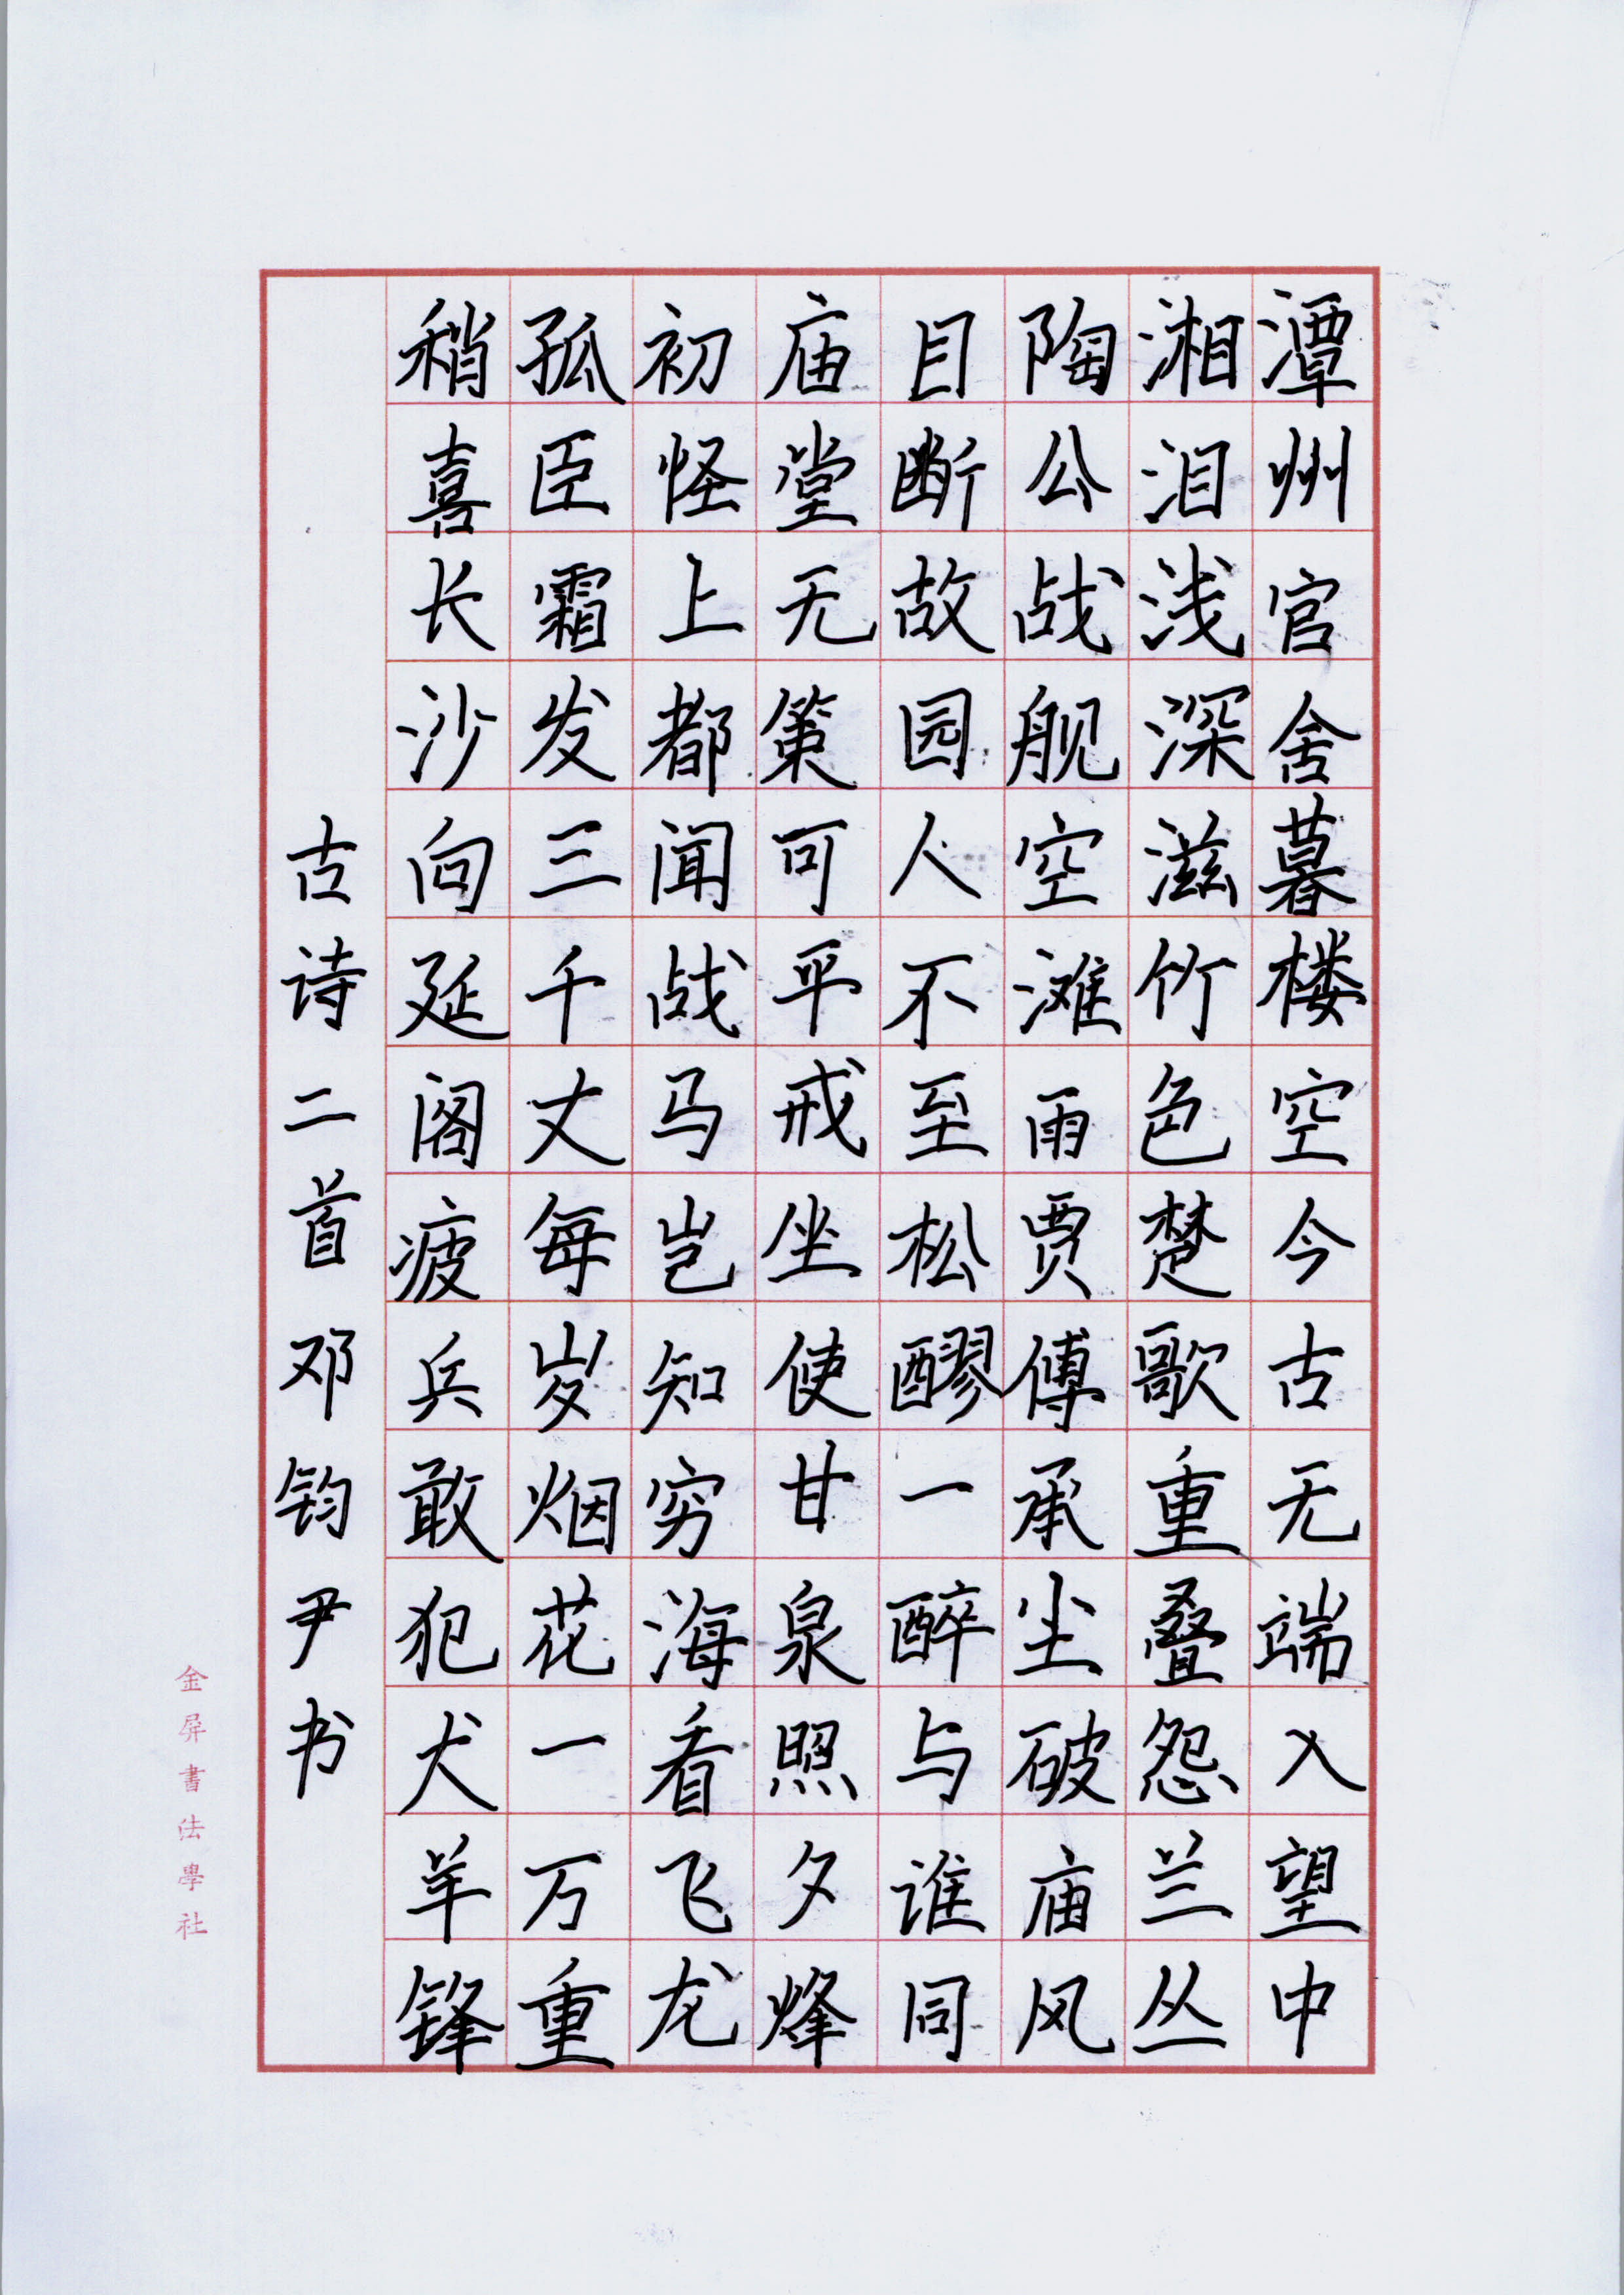 潭州官舍暮楼空今古无端入望中
湘泪浅深滋竹色楚歌重叠怨兰丛
陶公战舰空滩雨贾傅承尘破庙风
目断故园人不至松醪一醉与谁同
庙堂无策可平戎坐使甘泉照夕烽
初怪上都闻战马岂知穷海看飞龙
孤臣霜发三千丈每岁烟花一万重
稍喜长沙向延阁疲兵敢犯犬羊锋
古诗二首邓钧尹书
金屏書法學社